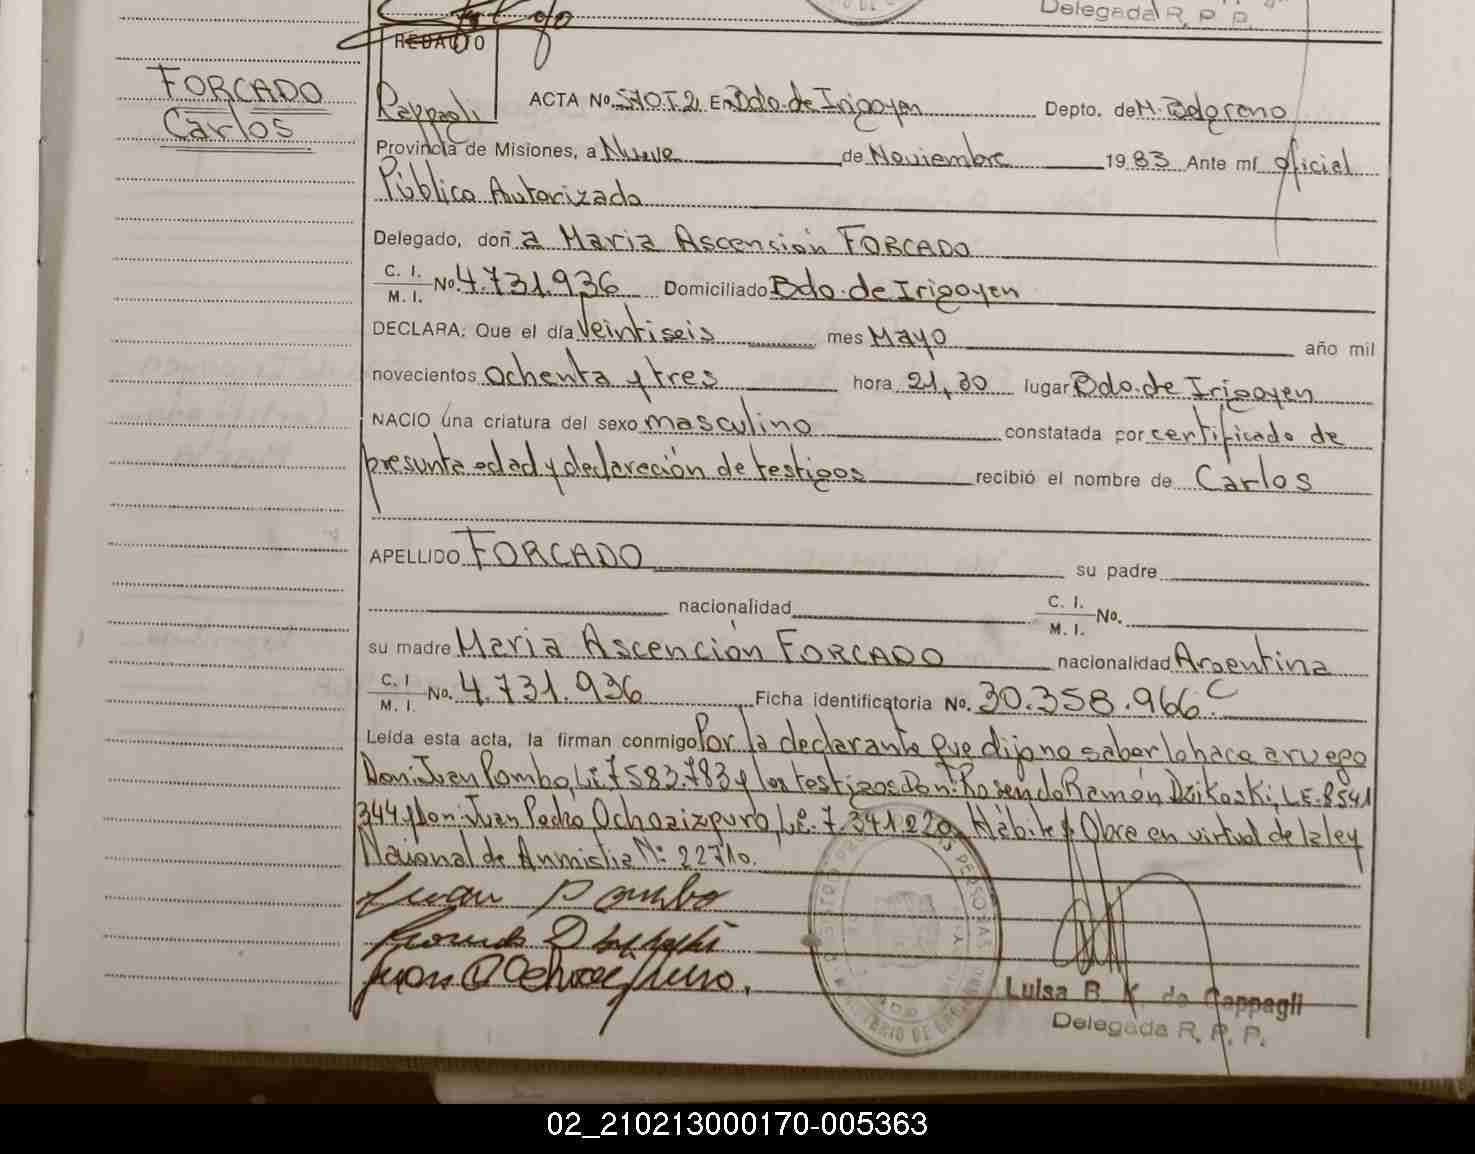 Delegada R. P. P.
REDACTO
FORCADO
Carlos
Rappagli
ACTA No. 540 T. 2 En Bdo. de Irigoyen Depto. de M. Belgrano
Provincia de Misiones, a Nueve de Noviembre 1983 Ante mí oficial
Público Autorizado
Delegado, doña Maria Ascensión FORCADO
C. I. M. I. No. 4.731.936 Domiciliado Bdo. de Irigoyen
DECLARA: Que el día Veintiseis mes Mayo año mil
novecientos ochenta y tres hora 21,30 lugar Bdo. de Irigoyen
NACIO una criatura del sexo masculino constatada por certificado de
presunta edad y declaración de testigos recibió el nombre de Carlos
APELLIDO FORCADO su padre
nacionalidad C. I. M. I. No.
su madre Maria Ascención FORCADO nacionalidad Argentina
C. I M. I. No. 4.731.936 Ficha identificatoria No. 30.358.966 C
Leída esta acta, la firman conmigo Por la declarante que dijo no saber lo hace a ruego
Don: Juan Pombo, L.E. 7583.783 y los testigos Don: Rosendo Ramón Dzikoski, L.E. 8541
344 y Don: Juan Pedro Ochoaizpuro, L.E. 7.341.220, Hábite y Obre en virtud de la ley
Nacional de Anmistia N: 22710.
Juan Pombo
Juan P Ochoaizpuro.
Luisa B. K. de Rappagli
Delegada R. P. P.
02_210213000170-005363